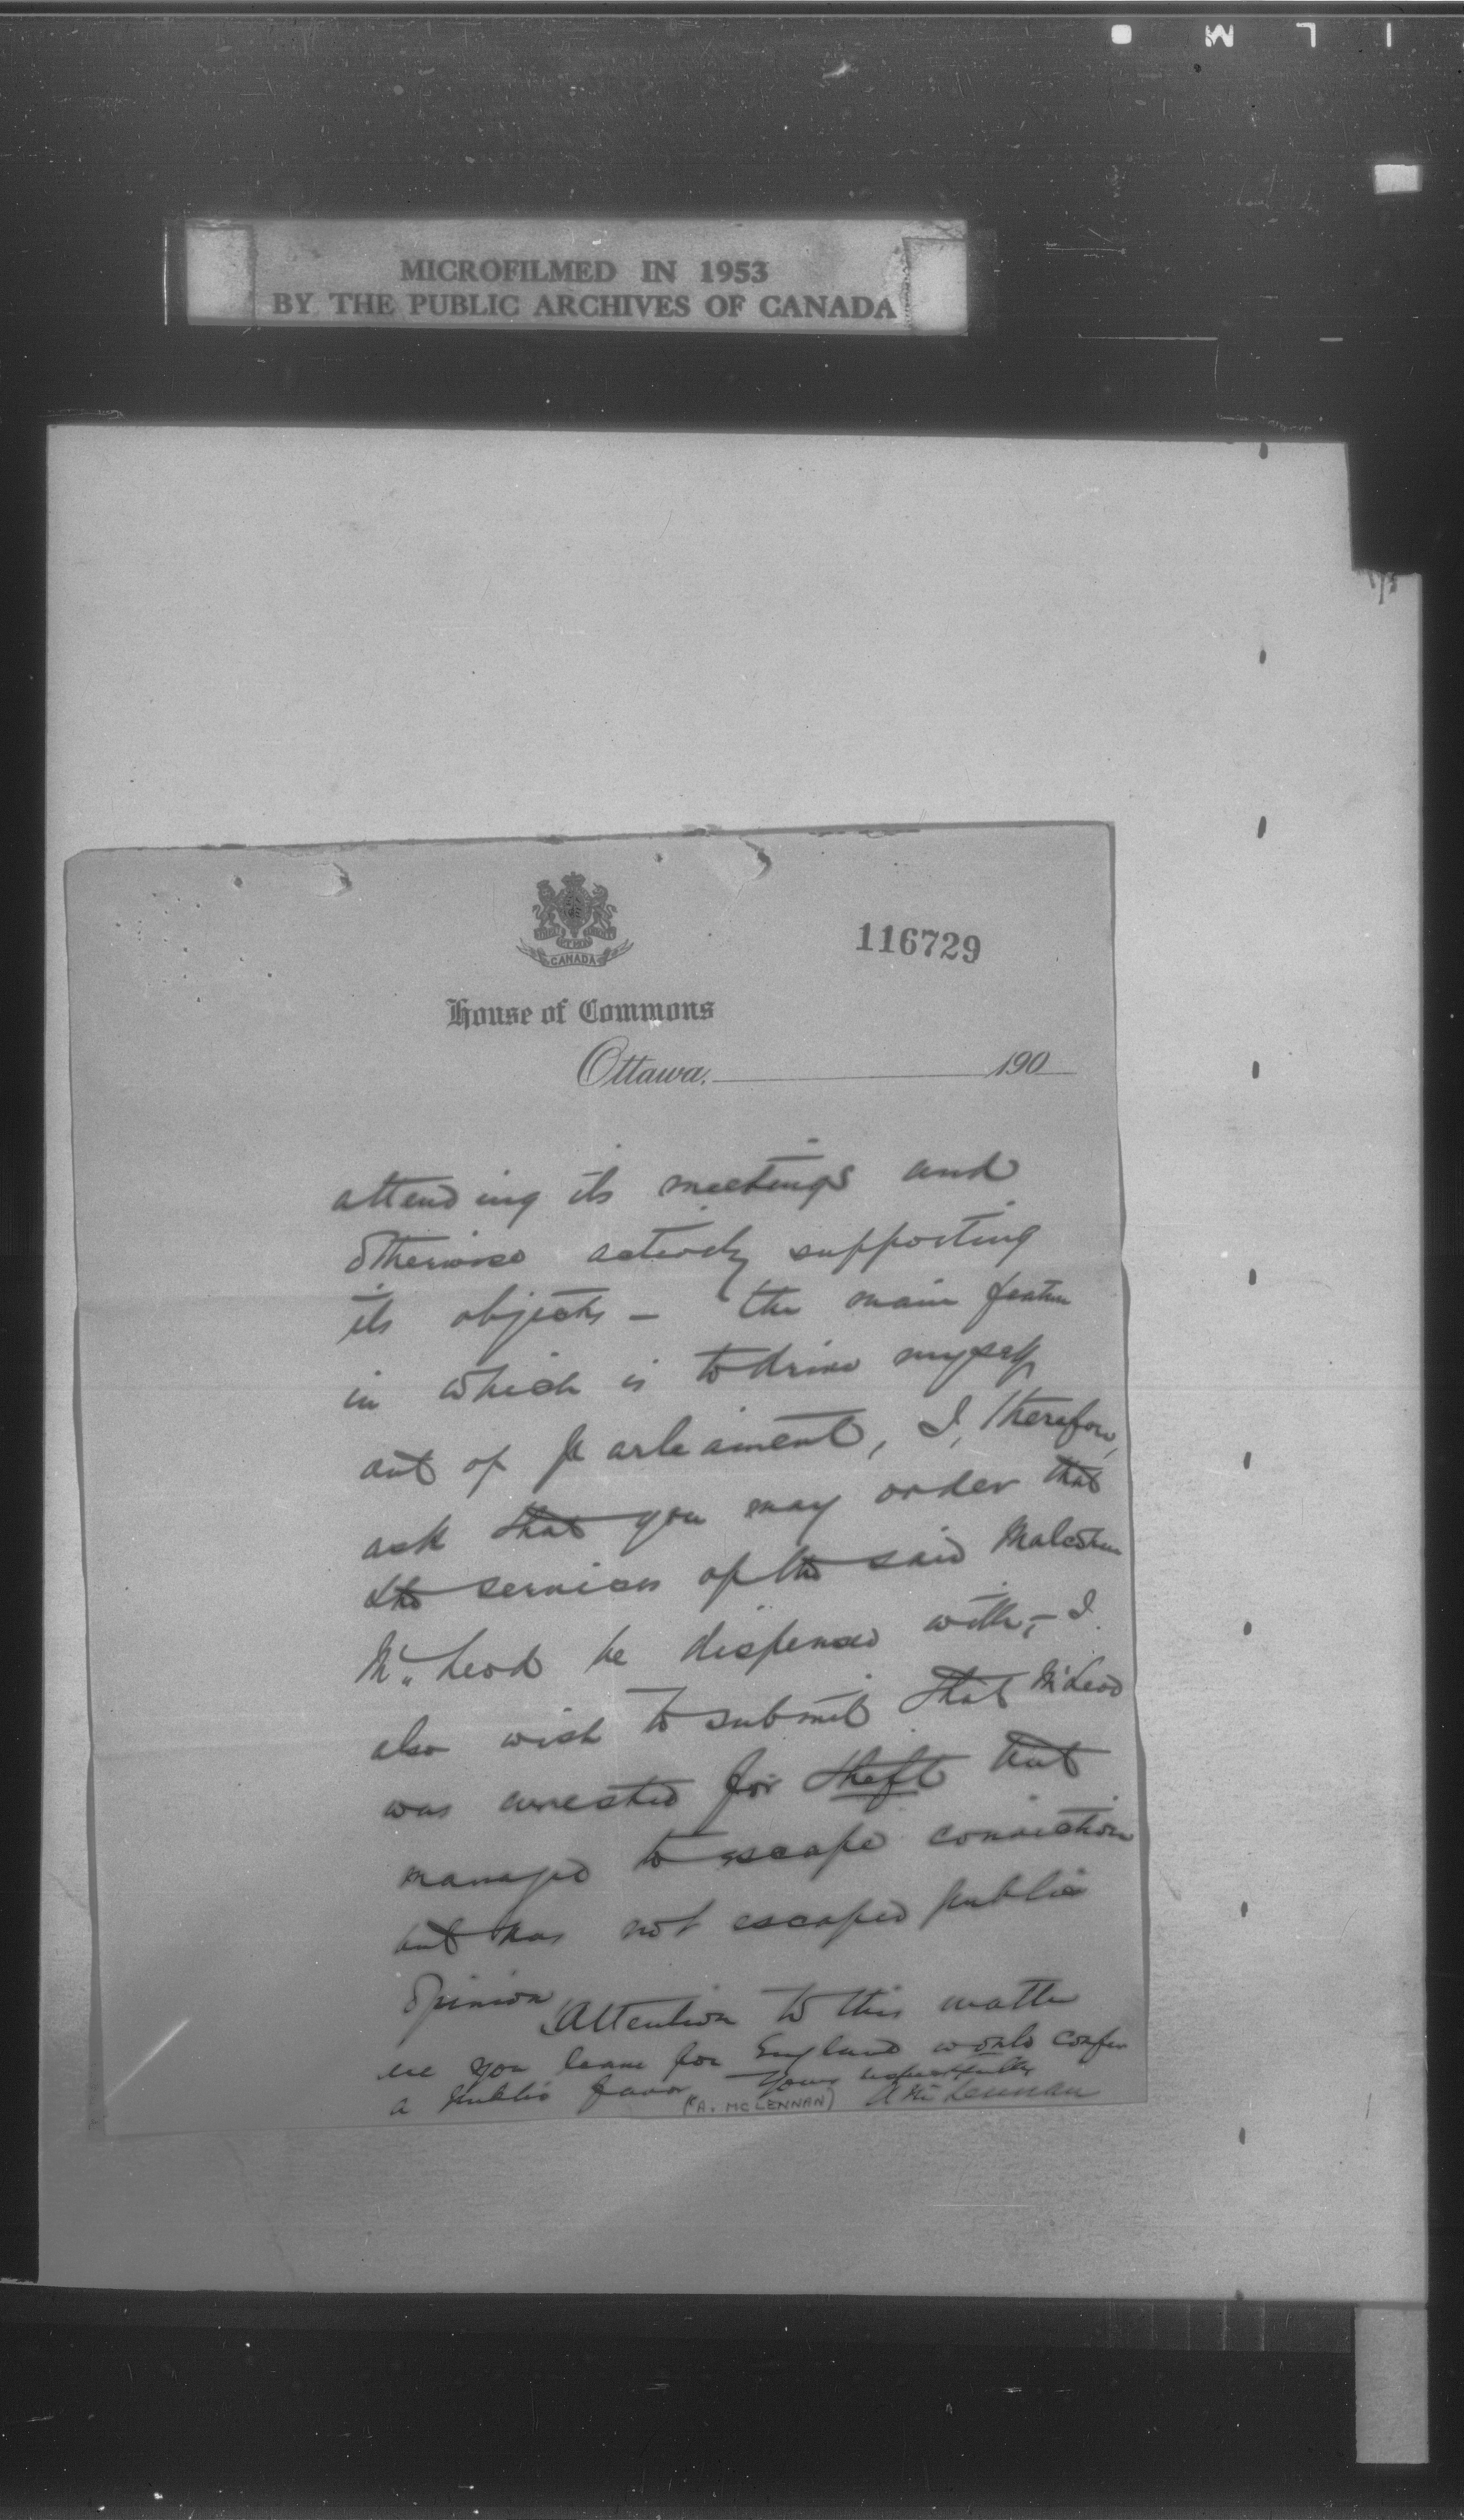 MICROFILMED IN 1953
BY THE PUBLIC ARCHIVES OF CANADA
CANADA
116729
House of Commons
Ottawa, 190
attending its meetings and
otherwise actively supporting
its objects – the main feature
in which is to drive myself
out of Parleament, I, therefore,
ask that you may order that
the services of the said Malcolm
McLeod be dispensed with, – I
also wish to submit that McLeod
was arrested for theft but
managed to escape conviction
but has not escaped public
opinion
Attention to this matter
ere you leave for England would confer
a public favor Yours respectfully
(A. MCLENNAN) A McLennan